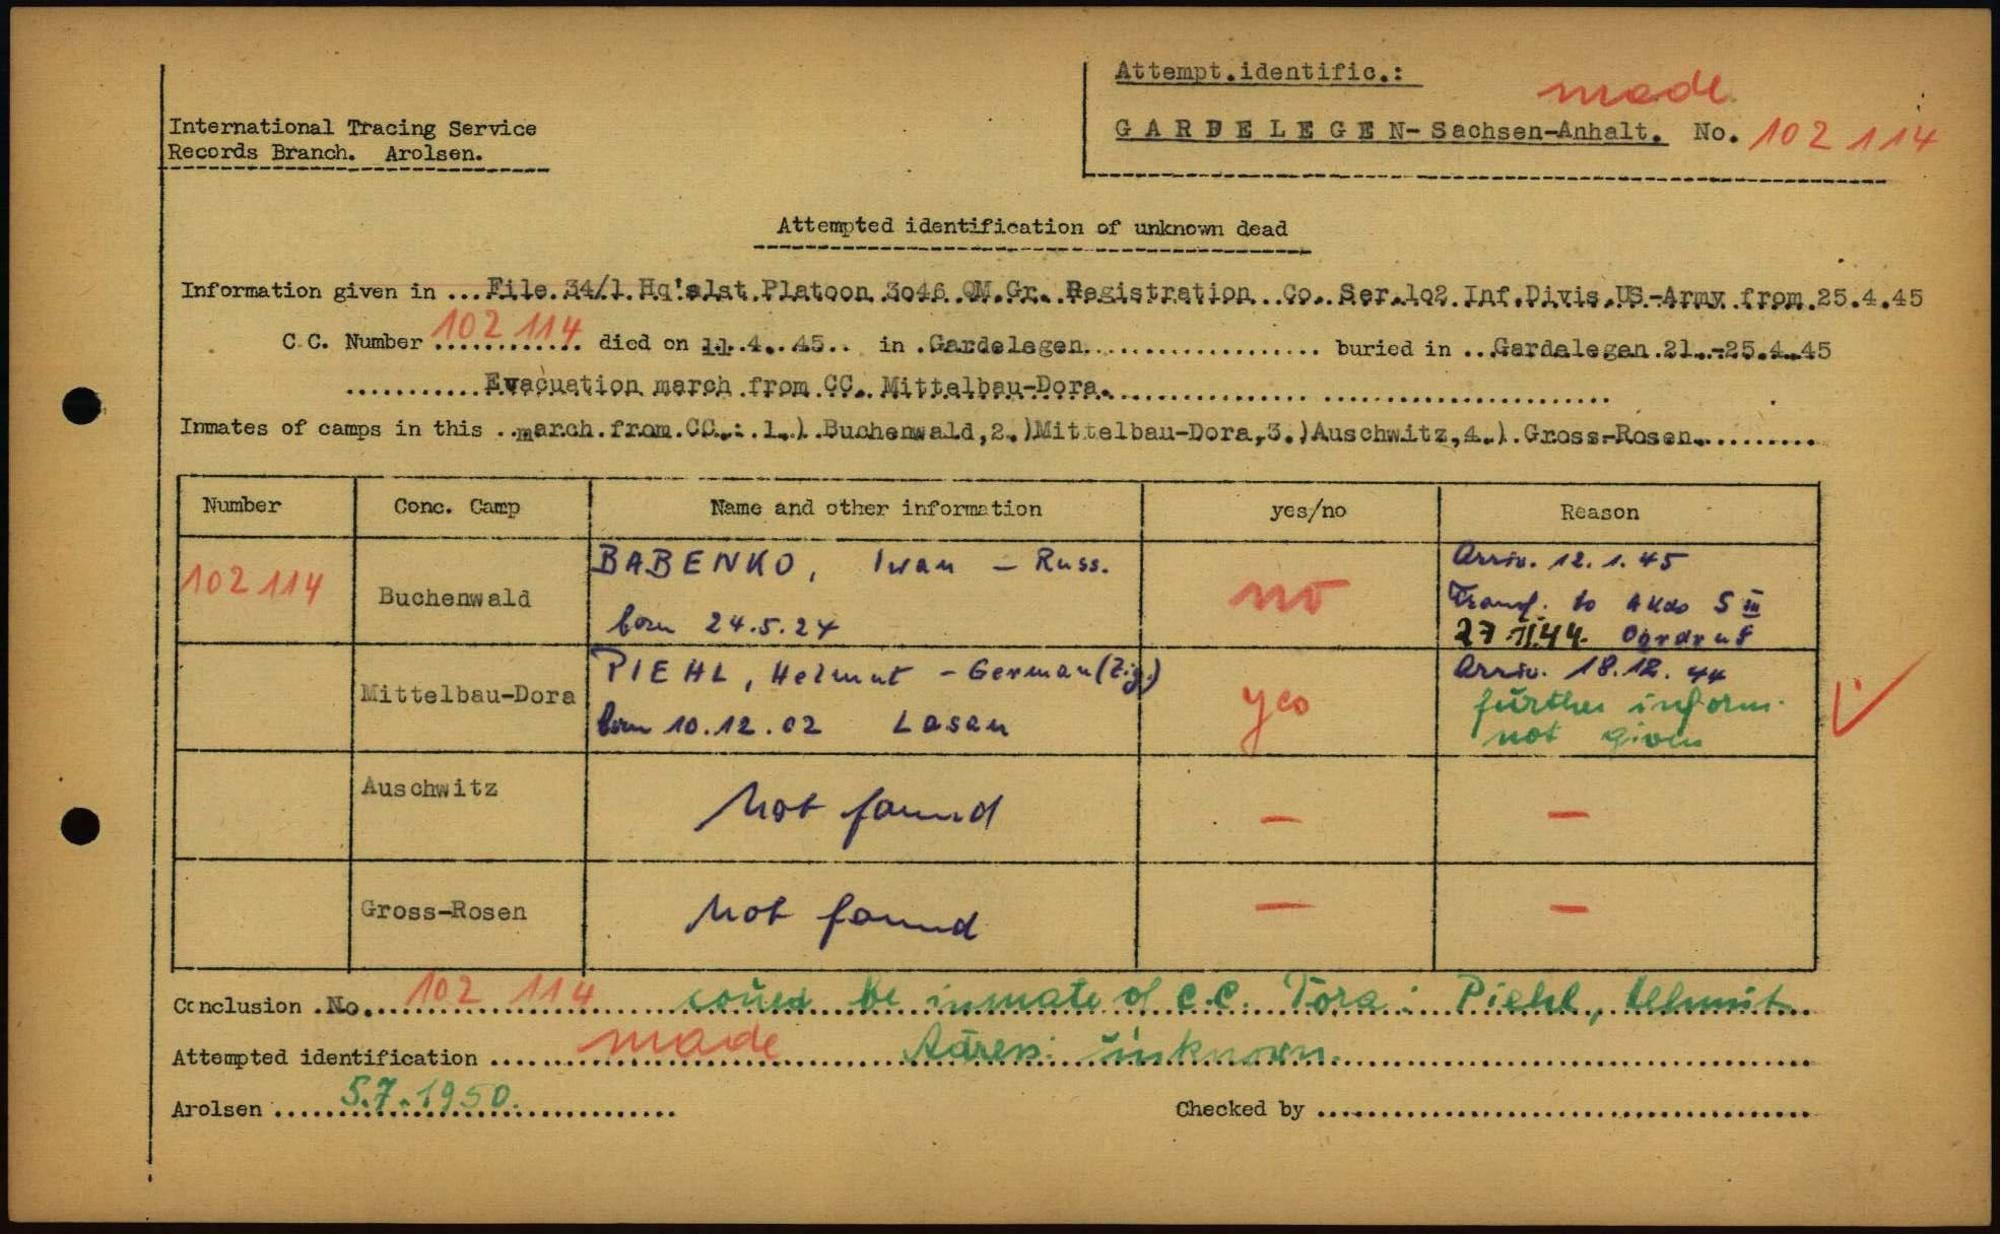 Attempt.identific.:
made
International Tracing Service
GARDELEGEN-Sachsen-Anhalt. No. 102 114
Records Branch. Arolsen.
Attempted identification of unknown dead
Information given in ...File.34/1.Hq's1st.Platoon.3o46.QM.Gr..Registration..Co..Ser.1o2.Inf.Divis.US.-Army.from.25.4.45
C.C. Number 102 114 died on 11.4..45.. in .Gardelegen.................... buried in ...Gardelegen.21.-25.4.45
...........Evacuation march.from.CC..Mittelbau-Dora.....................................
Inmates of camps in this ..march.from.CC.:.1.).Buchenwald,2.)Mittelbau-Dora,3.)Auschwitz,4.).Gross-Rosen..........
Number Conc. Camp Name and other information yes/no Reason
BABENKO, Iwan - Russ. Arriv. 12.1.45
102 114 Buchenwald no Transf. to AKdo S III
born 24.5.24 27.11.44. Ordruf
PIEHL, Helmut - German (Zig.) Arriv. 18.12.44
Mittelbau-Dora yes further inform.
born 10.12.02 Lasan not given
Auschwitz Not found — —
Gross-Rosen Not found — —
Conclusion .No. 102 114 could be inmate of C.C. Dora: Piehl, Helmut
Attempted identification made Adress: unknown.
Arolsen 5.7.1950. Checked by ........................................